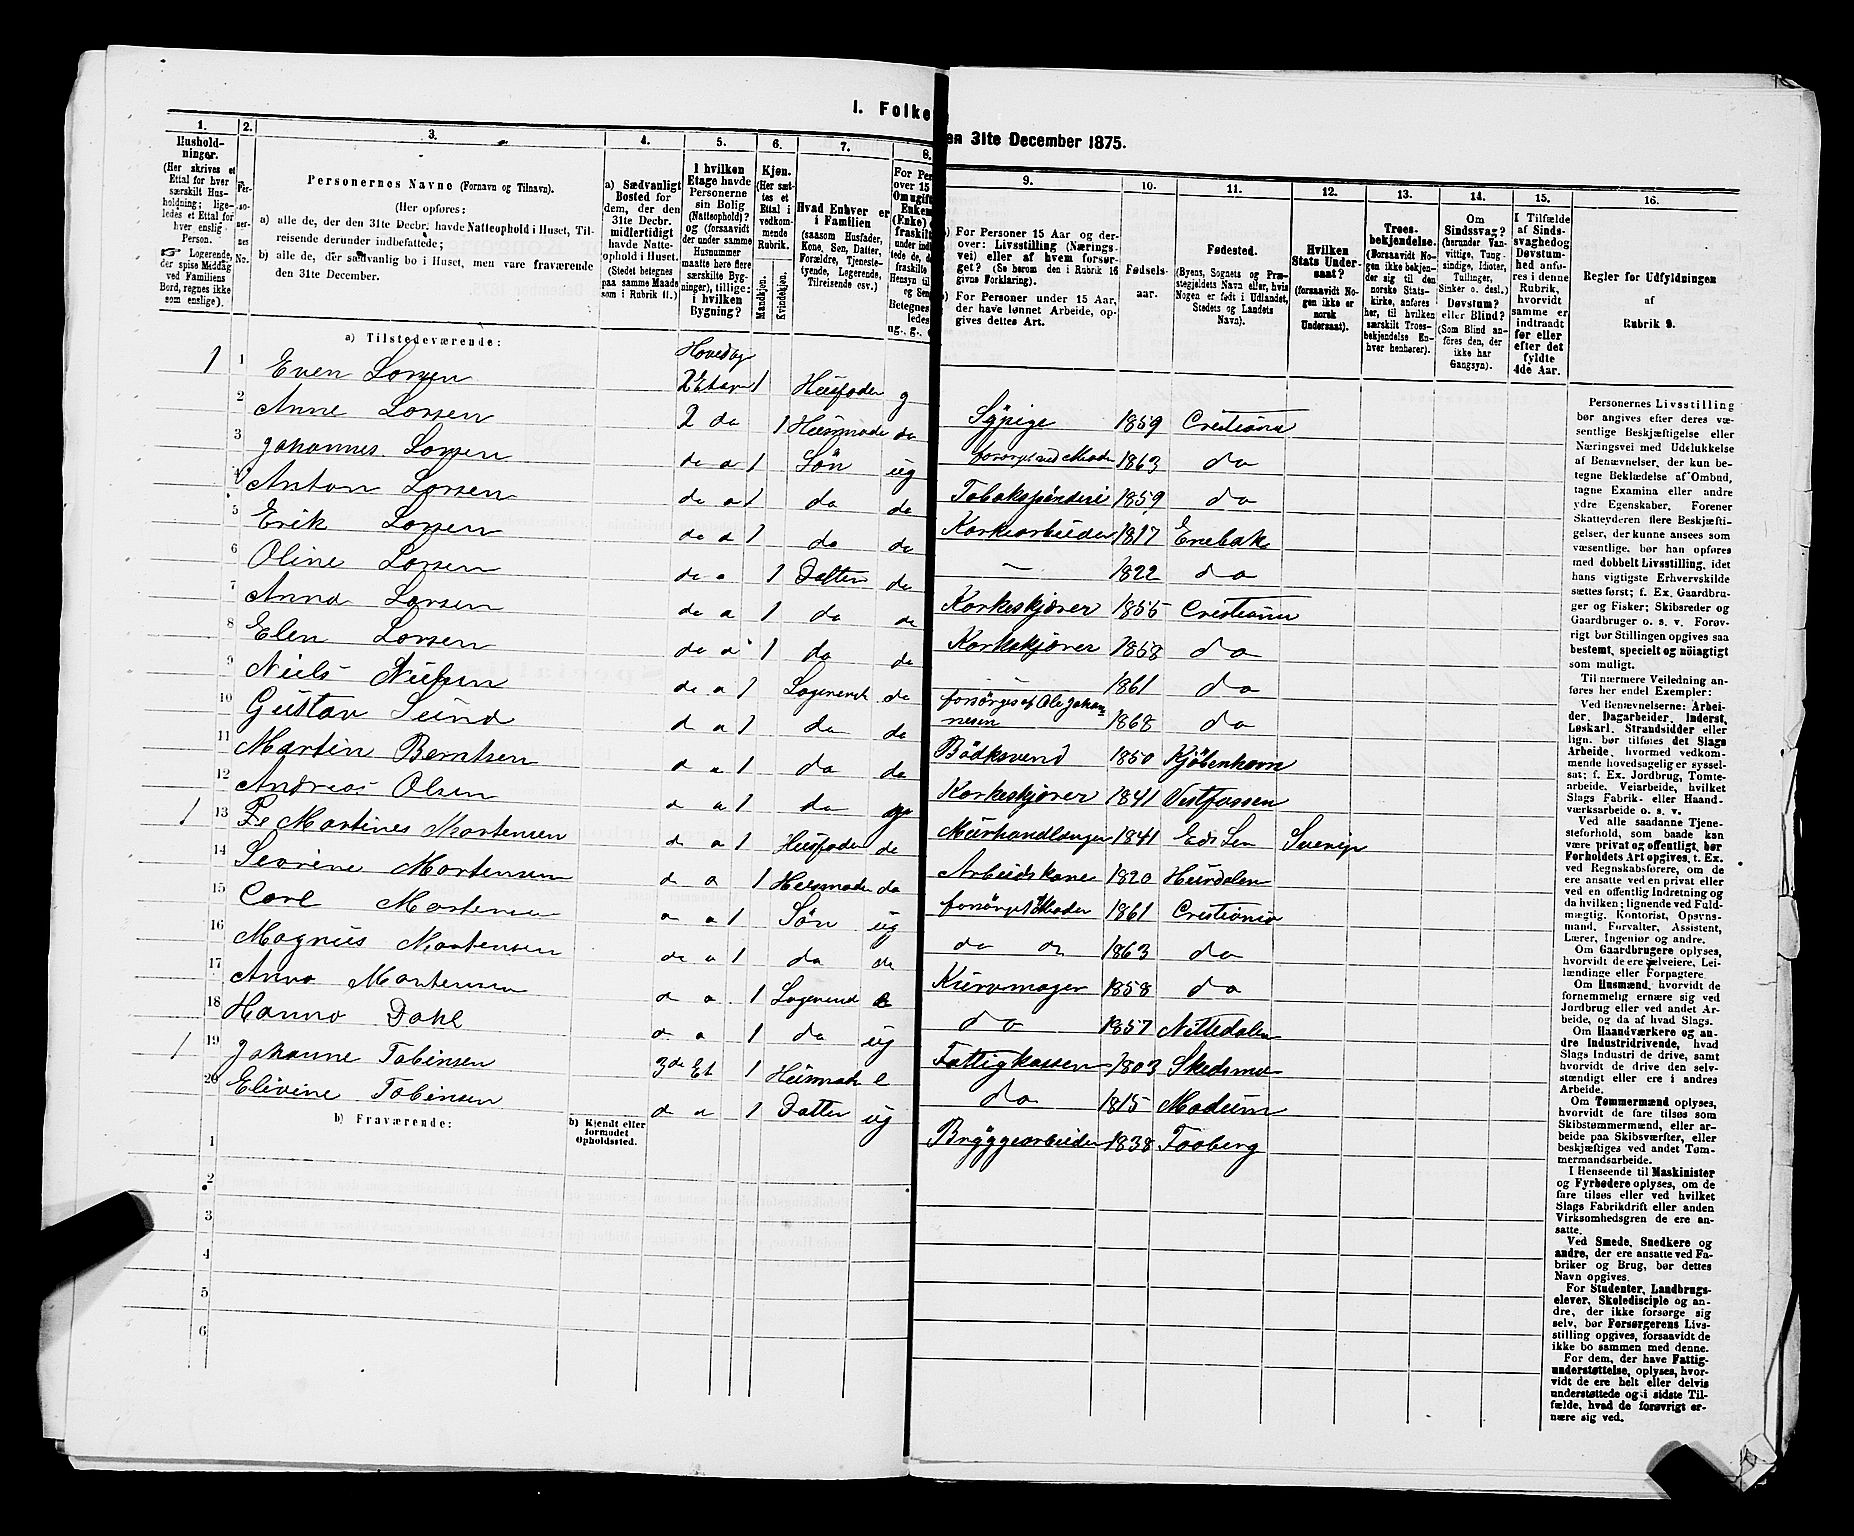 I. Folke
en 31te December 1875.
1. 2. 3. 4. 5. 6. 7. 8. 9. 10. 11. 12. 13. 14. 15. 16.
Hushold-
ninger.
(Her skrives et
Ettal for hver
særskilt Hus-
holdning; lige-
ledes et Ettal for
hver enslig
Person.
Logerende,
der spise Middag
ved Familiens
Bord, regnes ikke
som enslige).
Per-
so-
ner-
nes
No.
Personernes Navne (Fornavn og Tilnavn).
(Her opføres:
a) alle de, der den 31te Decbr. havde Natteophold i Huset, Til-
reisende derunder indbefattede;
b) alle de, der sædvanlig bo i Huset, men vare fraværende
den 31te December.
a) Sædvanligt
Bosted for
dem, der den
31te Decbr.
midlertidigt
havde Natte-
ophold i Huset.
(Stedet betegnes
paa samme Maade
som i Rubrik 11.)
I hvilken
Etage havde
Personerne
sin Bolig
(Natteophold)?
og (forsaavidt
der under samme
Husnummer
maatte høre flere
særskilte Byg-
ninger), tillige:
i hvilken
Bygning?
Kjøn.
(Her sæt-
tes et
Ettal i
vedkom-
mende
Rubrik.
Mandkjøn.
Kvindekjøn.
Hvad Enhver er
i Familien
(saasom Husfader,
Kone, Søn, Datter,
Forældre, Tjeneste-
tyende, Logerende,
Tilreisende osv.)
For Pers
over 15
Om ugift
Enkem
(Enke)
fraskilt
under indb
lede de, d
fraskilte
Hensyn til
og Sen
Betegnes
ledes
ug., g.,
For Personer 15 Aar og der-
over: Livsstilling (Nærings-
vei) eller af hvem forsør-
get? (Se herom den i Rubrik 16
givne Forklaring).
For Personer under 15 Aar,
der have lønnet Arbeide, op-
gives dettes Art.
Fødsels-
aar.
Fødested.
(Byens, Sognets og Præ-
stegjeldets Navn eller, hvis
Nogen er født i Udlandet,
Stedets og Landets
Navn).
Hvilken
Stats Under-
saat?
(forsaavidt No-
gen ikke er
norsk
Undersaat).
Troes-
bekjendelse.
(Forsaavidt No-
gen ikke bekjen-
der sig til den
norske Stats-
kirke, anføres
her, til hvilken
særskilt Troes-
bekjendelse En-
hver henhører).
Om
Sindssvag?
(herunder Van-
vittige, Tung-
sindige, Idioter,
Tullinger,
Sinker o. desl.)
Døvstum?
eller Blind?
(Som Blind an-
føres den, der
ikke har
Gangsyn).
I Tilfælde
af Sinds-
svaghed og
Døvstum-
hed anfø-
res i denne
Rubrik,
hvorvidt
samme er
indtraadt
før eller
efter det
fyldte
4de Aar.
Regler for Udfyldningen
af
Rubrik 9.
a) Tilstedeværende:
Hovedby
1 1 Even Larsen 2 Etage 1 Husfader g
2 Anne Larsen 2 do 1 Husmoder do Sÿpige 1859 Cristiania
3 Johannes Larsen do a 1 Sön ug forsörget ved Moder 1863 do
4 Anton Larsen do a 1 do do Tobakspinderi 1859 do
5 Erik Larsen do a 1 do do Korkearbeider 1817 Enebak
6 Oline Larsen do a 1 Datter do — 1822 do
7 Anna Larsen do a 1 do do Korkeskjærer 1855 Cristiania
8 Elen Larsen do a 1 do do Korkskjærer 1858 do
9 Niels Nielsen do a 1 Logerend do — 1861 do
10 Gustav Lund d a 1 do do forsörges af Ole Johan-
nesen 1868 do
11 Martin Berntsen d a 1 do do Bödksvend 1850 Kjöbenhavn
12 Andreas Olsen d a 1 do g Korkeskjærer 1841 Vestfossen
1 13 Martines Mortensen d a 1 Husfader do Murhandlanger 1841 Sverig
14 Severine Mortensen d a 1 Husmoder do Arbeidskone 1820 Hurdalen
15 Carl Mortensen a a 1 Sön ug forsörget Moder 1861 Cristiania
16 Magnus Mortensen do a 1 do do do do 1863 do
17 Anna Mortensen d a 1 Logerend Kurvmager 1858 do
18 Hanna Dahl d a 1 do ug do 1857 Nittedalen
1 19 Johanne Tobiesen 3de Et 1 Husmoder e Fattigkassen 1803 Skedsmo
20 Elivine Tobiesen d a 1 Datter ug do 1815 Modum
b) Fraværende:
b) Kjendt eller
formodet
Opholdssted.
1 Brÿggearbeider 1838 Faaberg
2
3
4
5
6
Personernes Livsstilling
bør angives efter deres væ-
sentlige Beskjæftigelse eller
Næringsvei med Udelukkelse
af Benævnelser, der kun be-
tegne Beklædelse af Ombud,
tagne Examina eller andre
ydre Egenskaber. Forener
Skatteyderen flere Beskjæfti-
gelser, der kunne ansees som
væsentlige, bør han opføres
med dobbelt Livsstilling, idet
hans vigtigste Erhvervskilde
sættes først; f. Ex. Gaardbru-
ger og Fisker; Skibsreder og
Gaardbruger o. s. v. Forøv-
rigt bør Stillingen opgives saa
bestemt, specielt og nöiagtigt
som muligt.
Til nærmere Veiledning an-
føres her endel Exempler:
Ved Benævnelserne: Arbei-
der, Dagarbeider, Inderst,
Løskarl, Strandsidder eller
lign. bør tilføies det Slags
Arbeide, hvormed vedkom-
mende hovedsagelig er syssel-
sat; f. Ex. Jordbrug, Tomte-
arbeide, Veiarbeide, hvilket
Slags Fabrik- eller Haand-
værksarbeide o. s. v.
Ved alle saadanne Tjene-
steforhold, som baade kan
være privat og offentligt, bør
Forholdets Art opgives, t. Ex.
ved Regnskabsførere, om de
ere ansatte ved en privat eller
ved en offentlig Indretning og
da hvilken; lignende ved Fuld-
mægtig, Kontorist, Opsyns-
mand, Forvalter, Assistent,
Lærer, Ingeniør og andre.
Om Gaardbrugere oplyses,
hvorvidt de ere Selveiere, Lei-
lændinge eller Forpagtere.
Om Husmænd, hvorvidt de
fornemmelig ernære sig ved
Jordbrug eller ved andet Ar-
beide, og da af hvad Slags.
Om Haandværkere og an-
dre Industridrivende, hvad
Slags Industri de drive, samt
hvorvidt de drive den selv-
stændigt eller ere i andres
Arbeide.
Om Tømmermænd oplyses,
hvorvidt de fare tilsøs som
Skibstømmermænd, eller ar-
beide paa Skibsværfter, eller
beskjæftiges ved andet Tøm-
mermandsarbeide.
I Henseende til Maskinister
og Fyrbødere oplyses, om de
fare tilsøs eller ved hvilket
Slags Fabrikdrift eller anden
Virksomhedsgren de ere an-
satte.
Ved Smede, Snedkere og
andre, der ere ansatte ved Fa-
briker og Brug, bør dettes
Navn opgives.
For Studenter, Landbrugs-
elever, Skoledisciple og an-
dre, der ikke forsørge sig
selv, bør Forsørgerens Livs-
stilling opgives, forsaavidt de
ikke bo sammen med denne.
For dem, der have Fattig-
understøttelse, oplyses, hvor-
vidt de ere helt eller delvis
understøttede og i sidste Til-
fælde, hvad de forøvrigt er-
nære sig ved.